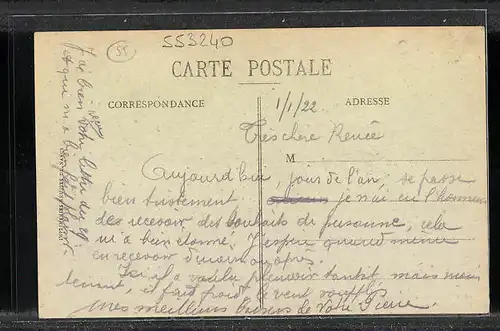 55
553240
CARTE POSTALE
CORRESPONDANCE
ADRESSE
1/1/22
Très chère Renée
M
Aujourd'hui, jour de l'an, se passe
bien tristement je n'ai eu l'honneur
des recevoir des souhaits de Susanne, cela
m'a bien étonné. J'espère quand même
en recevoir d'ici après.
Ici il a voulu pleuvoir tantôt mais main
tenant, il fait froid le vent souffle.
Mes meilleurs baisers de votre Pierre.
J'ai bien reçu votre lettre du 29
et qui m'a bien fait plaisir.